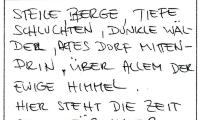 STEILE BERGE, TIEFE
SCHLUCHTEN, DUNKLE WÄL-
DER, ALTES DORF MITTEN-
DRIN, ÜBER ALLEM DER
EWIGE HIMMEL.
HIER STEHT DIE ZEIT